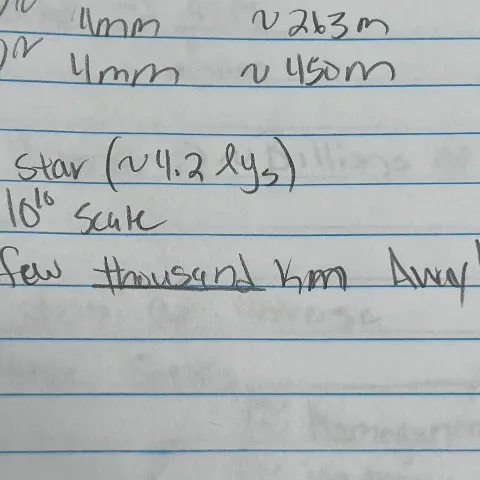 4mm ~263m
4mm ~450m
star (~4.2 lys)
10^10 scale
few thousand km Away!